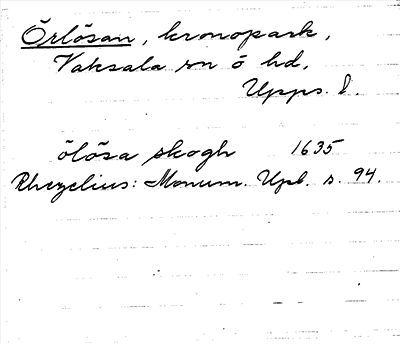 Örlösan, kronopark,
Vaksala sn o hd,
Upps. l.
ölösa skogh 1635
Rhezelius: Monum. Upl. s. 94.